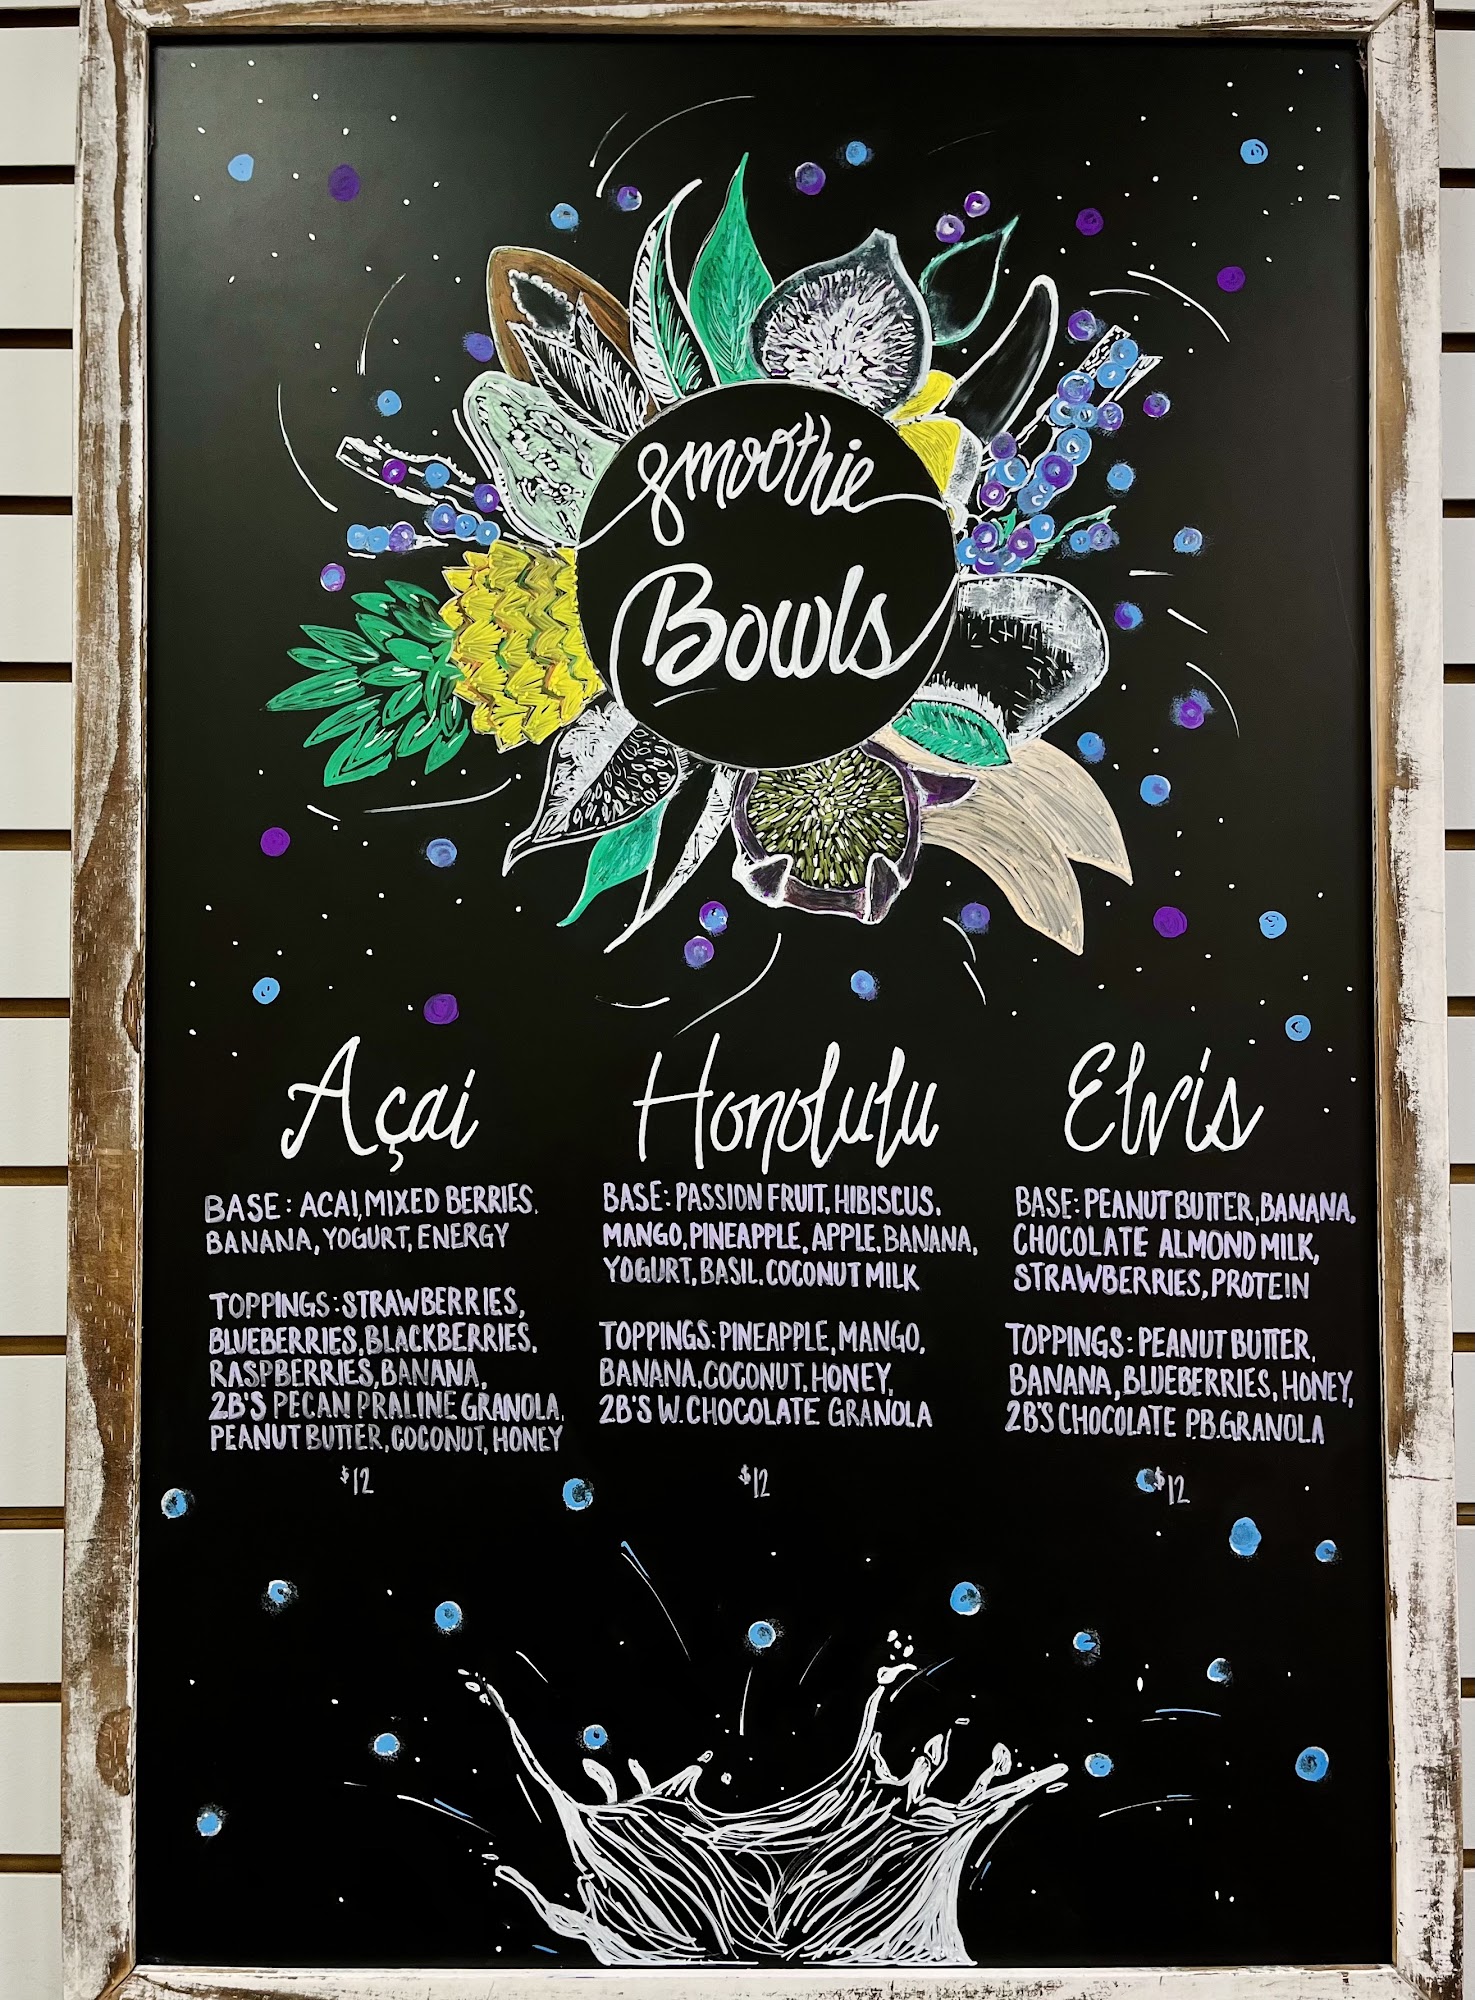 Smoothie
Bowls
Açai
BASE: ACAI, MIXED BERRIES.
BANANA, YOGURT, ENERGY
TOPPINGS: STRAWBERRIES,
BLUEBERRIES, BLACKBERRIES.
RASPBERRIES, BANANA,
2B'S PECAN PRALINE GRANOLA.
PEANUT BUTTER, COCONUT, HONEY
$12
Honolulu
BASE: PASSION FRUIT, HIBISCUS.
MANGO, PINEAPPLE, APPLE, BANANA,
YOGURT, BASIL. COCONUT MILK
TOPPINGS: PINEAPPLE, MANGO,
BANANA, COCONUT, HONEY,
2B'S W. CHOCOLATE GRANOLA
$12
Elvis
BASE: PEANUT BUTTER, BANANA,
CHOCOLATE ALMOND MILK,
STRAWBERRIES, PROTEIN
TOPPINGS: PEANUT BUTTER,
BANANA, BLUEBERRIES, HONEY,
2B'S CHOCOLATE P.B. GRANOLA
$12